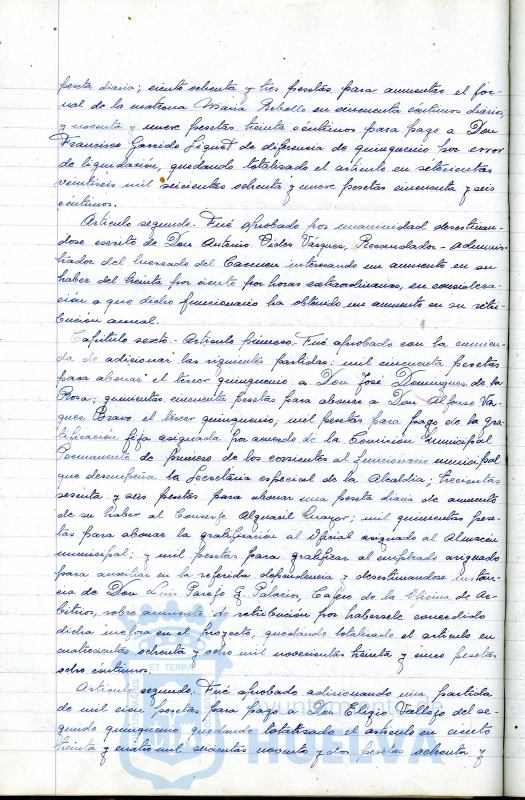 peseta diaria; ciento ochenta y tres pesetas para aumentar el jor-
nal de la matrona María Rebollo en cincuenta céntimos diarios;
y noventa y nueve pesetas treinta céntimos para pago a Don
Francisco Garrido de diferencia de quinquenio por error
de liquidación, quedando totalizado el artículo en setecientas
veintiseis mil seiscientas ochenta y nueve pesetas cincuenta y seis
céntimos.
Artículo segundo.- Fué aprobado por unanimidad desestiman-
dose escrito de Don Antonio Vides Vásquez, Recaudador-Adminis-
trador del Mercado del Carmen interesando un aumento en su
haber del treinta por ciento por horas extraordinarias, en considera-
ción a que dicho funcionario ha obtenido un aumento en su retri-
bución anual.
Capítulo sexto.- Artículo primero.- Fué aprobado con la enmien-
da de adicionar las siguientes partidas: mil cincuenta pesetas
para abonar el tercer quinquenio a Don José Domínguez de la
Rosa; quinientas cincuenta pesetas para abonar a Don Alfonso Vaz-
quez Bravo el tercer quinquenio; mil pesetas para pago de la gra-
tificación fija asignada por acuerdo de la Comisión Municipal
Permanente de primero de los corrientes al funcionario municipal
que desempeña la Secretaría especial de la Alcaldía; trescientas
sesenta y seis pesetas para abonar una peseta diaria de aumento
de su haber al Conserje Alguacil Mayor; mil quinientas pese-
tas para abonar la gratificación al Oficial asignado al Almacén
municipal; y mil pesetas para gratificar al empleado asignado
para auxiliar en la referida dependencia y desestimandose instan-
cia de Don Luis G. Palacios, Cajero de la Oficina de Ar-
bitrios, sobre aumento de retribución por habersele concedido
dicha mejora en el proyecto, quedando totalizado el artículo en
cuatrocientas ochenta y ocho mil novecientas treinta y cinco pesetas
ocho céntimos.
Artículo segundo.- Fué aprobado adicionando una partida
de mil cien pesetas para pago a Don Eligio Vallejo del se-
gundo quinquenio quedando totalizado el artículo en ciento
treinta y cuatro mil seiscientas noventa y dos pesetas ochenta y
ET TERRAE
Ayuntamiento de
HUELVA